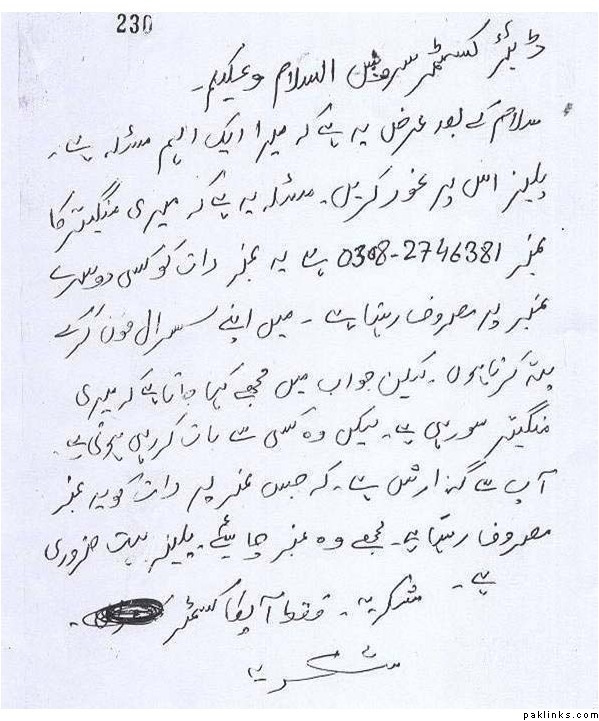 230
ڈئیر کسٹمر سروس السلام وعلیکم۔
سلام کے بعد عرض یہ ہے کہ میرا ایک اہم مسئلہ ہے۔
پلیز اس پر غور کریں۔ مسئلہ یہ ہے کہ میری منگیتر کا
نمبر 0308-2746381 ہے یہ نمبر رات کو کسی دوسرے
نمبر پر مصروف رہتا ہے۔ میں اپنے سسرال فون کر کے
پتہ کرتا ہوں۔ لیکن جواب میں مجھے کہا جاتا ہے کہ میری
منگیتر سو رہی ہے۔ لیکن وہ کسی سے بات کر رہی ہوتی ہے۔
آپ سے گزارش ہے۔ کہ جس نمبر پر رات کو یہ نمبر
مصروف رہتا ہے۔ مجھے وہ نمبر چاہیئے۔ پلیز بہت ضروری
ہے۔ شکریہ۔ فقط آپکا کسٹمر
شکریہ
paklinks.com